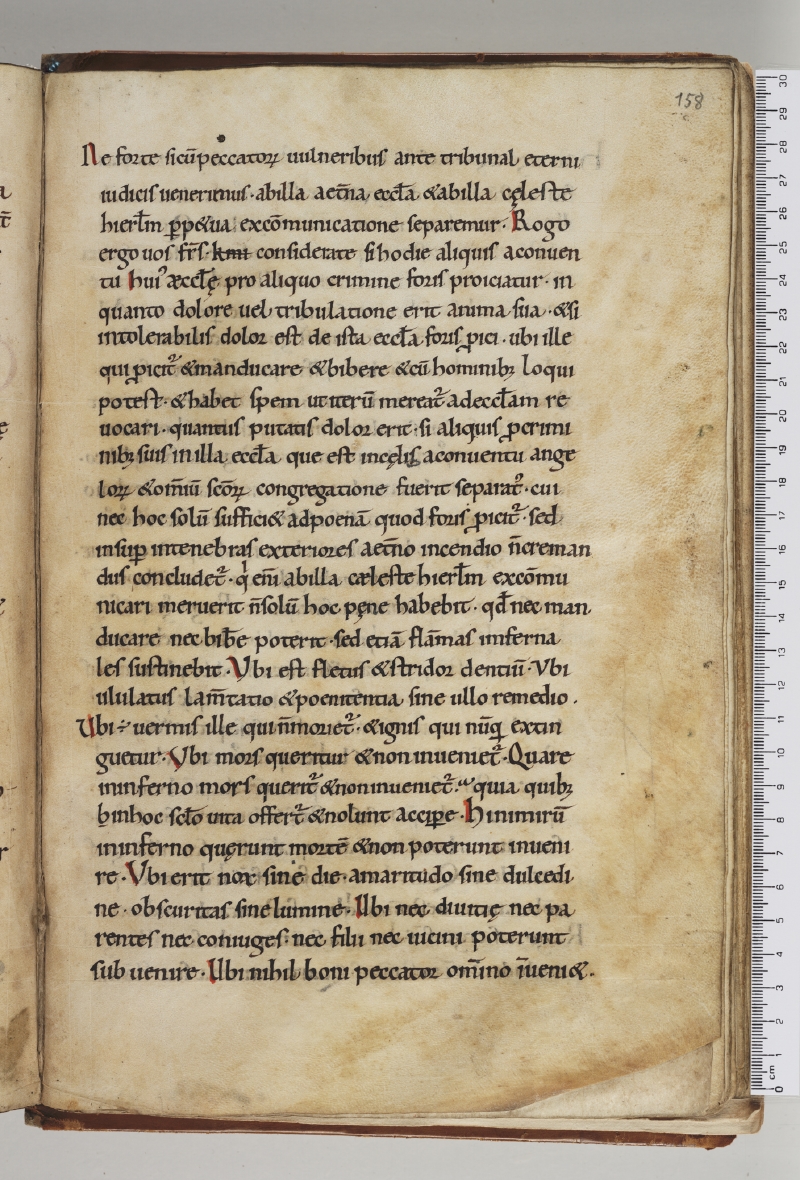 158
Ne forte sicū peccatorꝝ uulneribus ante tribunal eterni
iudicis uenerimus· ab illa aet̄na eccl̄a &ab illa cęleste
hierl̄m ꝑp&ua excōmunicatione separemur· Rogo
ergo uos fr̄s· kmi considerate si hodie aliquis aconuen
tu huiꝰ æccl̄ę pro aliquo crimine foris proiciatur· in
quanto dolore uel tribulatione erit anima sua· &si
intolerabilis dolor est de ista eccl̄a foris ꝓici· ubi ille
qui ꝓicit᷑ &manducare &bibere &cū hominibꝫ loqui
potest· &habet spem ut iterū mereat᷑ adeccl̄am re
uocari· quantus putatis dolor erit· si aliquis ꝑcrimi
nibꝫ suis in illa eccl̄a que est incęlis aconuentu ange
lorꝝ &omiū sc̄orꝝ congregatione fuerit separat᷑· cui
nec hoc solū suffici& adpoenā quod foris ꝓicit᷑· sed
insuꝑ intenebras exteriores aet̄no incendio n̄creman
dus concludet᷑· qͥ em̄ abilla cæleste hierl̄m excōmu
nicari meruerit n̄solū hoc pęne habebit· qd̄ nec man
ducare nec bib̄e poterit· sed etiā flāmas inferna
les sustinebit· Vbi est fletus &stridor dentiū· Vbi
ululatus lam̄tatio &poenitentia sine ullo remedio·
Vbi ÷ uermis ille qui n̄moriet᷑· &ignis qui nūꝗ extin
guetur· Vbi mors queritur &non inueniet᷑· Quare
ininferno mors querit᷑ &non inueniet᷑· quia quibꝫ
hinhoc sc̄lo uita offert᷑ &nolunt acciꝑe· Hi nimirū
ininferno quęrunt mortē &non poterunt inueni
re· Vbi erit nox sine die· amaritudo sine dulcedi
ne· obscuritas sine lumine· Ubi nec diuitię nec pa
rentes nec coniuges· nec filii nec uicini poterunt
sub uenire· Ubi nihil boni peccator om̄ino īueni&·
30
29
28
27
26
25
24
23
22
21
20
19
18
17
16
15
14
13
12
11
10
9
8
7
6
5
4
3
2
1
cm
0